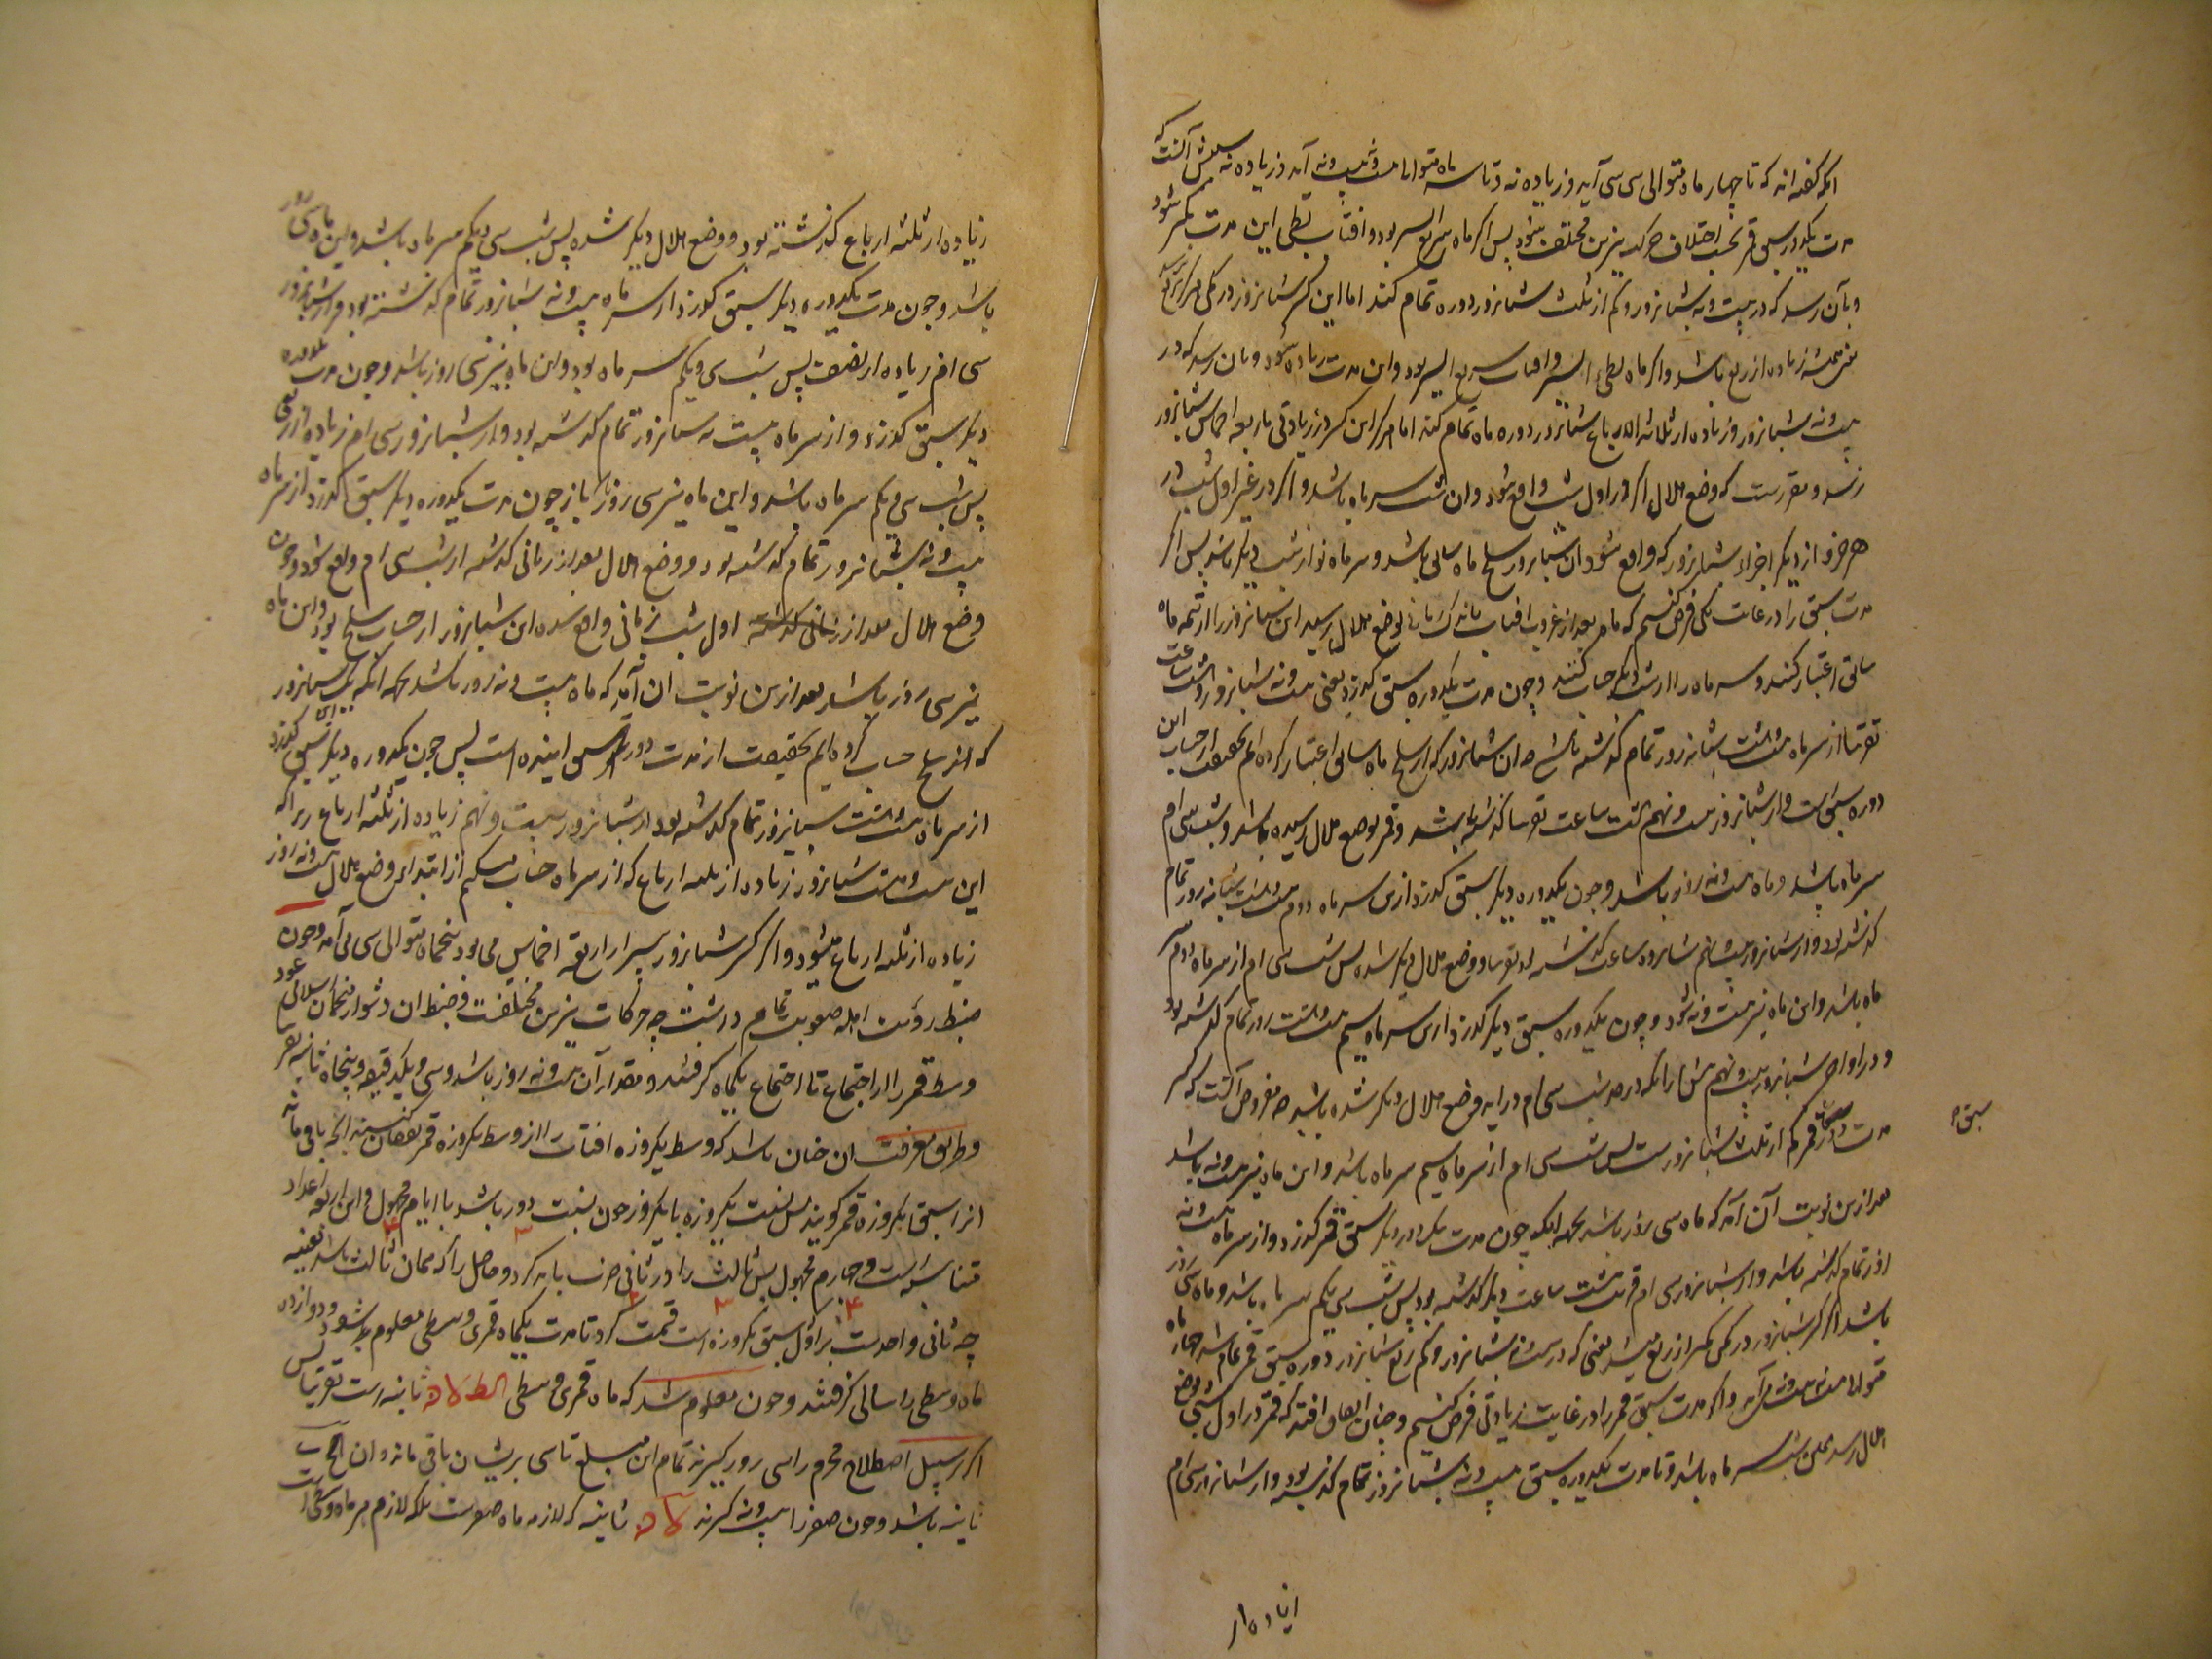 انکه گفته‌اند که تا چهار ماه متوالی سی سی آید و زیاده نه و تا سه ماه متوالی بیست و نه آید و زیاده نه سببش آنست که
مدت یکدور سبق قمر بحسب اختلاف حرکت نیرین مختلف میشود پس اگر ماه سریع السیر بود و افتاب بطی این مدت کمتر شود
و بآن رسد که در بیست و نه شبانروز و کم از ثلث شبانروز دوره تمام کند اما این کسر شبانروز در کمی هرگز بربع نرسد
یعنی همیشه زیاده از ربع باشد و اگر ماه بطی السیر و افتاب سریع السیر بود و این مدت زیاده شود و بان رسد که در
بیست و نه شبانروز و زیاده از ثلاثه الارباع شبانروز دوره ماه تمام کند اما هرگز این کسر در زیادتی باربعه اخماس شبانروز
نرسد و مقررست که وضع هلال اگر در اول شب واقع شود و ان شب سر ماه باشد و اگر در غیر اول شب در
هر جزو از دیگر اجزاء شبانروز که واقع شود ان شبانروز سلخ ماه سالی باشد و سر ماه نو از شب دیگر باشد پس اگر
مدت سبق را در غایت کمی فرض کنیم که ماه بعد از غروب افتاب باندک زمانی بوضع هلال رسید این شبانروز را از تتمه ماه
سالی اعتبار کنند و سر ماه را از شب دیگر حساب کنند و چون مدت یکدوره سبق گذرد یعنی بیست و نه شبانروز و هشت ساعت
تقریبا از سر ماه بیست و هشت شبانه روز تمام گذشته باشد چه ان شبانروز که از سلخ ماه سالی اعتبار کرده‌ایم بحقیقت از حساب این
دوره سبق است و از شبانروز بیست و نهم هشت ساعت تقریبا گذشته باشد و قمر بوضع هلال رسیده باشد و شب سی ام
سر ماه باشد و ماه بیست و نه روز باشد و چون یکدوره دیگر سبق گذرد از سر ماه دوم بیست و هشت شبانه روز تمام
گذشته بود و از شبانروز بیست و نهم شانزده ساعت گذشته بود تقریبا و وضع هلال دیگر شده پس شب سی ام از سر ماه دوم سر
ماه باشد و این ماه نیز بیست و نه شود و چون یکدوره سبق دیگر گذرد از سر ماه سیم بیست و هشت روز تمام گذشته بود
و در اواخر شبانروز بیست و نهم پیش از انکه در حد شب سی ام در اید وضع هلال دیگر شده باشد چه مفروض آنست که کسر
سبق
مدت قمر کم از ثلث شبانروزست پس شب سی ام از سر ماه سیم سر ماه باشد و این ماه نیز بیست و نه باشد
بعد ازین نوبت آن آمد که ماه سی روز باشد بجهه انکه چون مدت یکدور دیگر سبق قمر گذرد و از سر ماه بیست و نه
روز تمام گذشته باشد و از شبانروز سی ام قریب هشت ساعت دیگر گذشته بود پس شب سی و یکم سر ماه باشد و ماه سی روز
باشد اگر کسر شبانروز در کمی کمتر از ربع میشد یعنی که در بیست و نه شبانروز و کم ربع شبانروز دوره سبق قمر تمام شد چهار ماه
متوالی بیست و نه بیست و نه می آمد و اگر مدت سبق قمر را در غایت زیادتی فرض کنیم و چنان اتفاق افتد که قمر در اول شبی بوضع
هلال رسد همان شب سر ماه باشد و تا مدت یکدوره سبق بیست و نه شبانروز تمام گذشته بود و از شبانروز سی ام
زیاده از
زیاده از ثلثه ارباع گذشته بود و وضع هلال دیگر شده پس شب سی و یکم سر ماه باشد و این ماه سی روز
باشد و چون مدت یکدوره دیگر سبق گذرد از سر ماه بیست و نه شبانروز تمام گذشته بود و از شبانروز
سی ام زیاده از نصف پس شب سی و یکم سر ماه بود و این ماه نیز سی روز باشد و چون مدت یکدوره
دیگر سبق گذرد و از سر ماه بیست و نه شبانروز تمام گذشته بود و از شبانروز سی ام زیاده از ربعی
پس شب سی و یکم سر ماه باشد و این ماه نیز سی روز باز چون مدت یکدوره دیگر سبق گذرد از سر ماه
بیست و نه شبانروز تمام گذشته بود و وضع هلال بعد از زمانی گذشته از شب سی ام واقع شود و چون
وضع هلال بعد از اول شب بزمانی واقع شده این شبانروز از حساب سلخ بود و این ماه
نیز سی روز باشد بعد ازین نوبت ان آید که ماه بیست و نه روز باشد بجهه انکه یک شبانروز
که از سلخ حساب کرده‌ایم بحقیقت از مدت دور سبق اینده است پس چون یکدوره دیگر سبق گذرد
از سر ماه بیست و هشت شبانروز تمام گذشته بود از شبانروز بیست و نهم زیاده از ثلثه ارباع زیرا که
این بیست و هشت شبانروز و زیاده از ثلثه ارباع که از سر ماه حساب میکنیم از ابتداء وضع هلال بیست و نه روز
زیاده از ثلثه ارباع میشود و اگر کسر شبانروز سبق باربعه اخماس می بود پنجماه متوالی سی می آمد و چون
ضبط رؤیت اهله صعوبت تمام درشت چه حرکات نیرین مختلفست و ضبط ان دشوار منجمان اسلامی عود
وسط قمر را از اجتماع تا اجتماع یکماه گرفتند و مقدار آن بیست و نه روز باشد و سی و یکدقیقه و پنجاه ثانیه تقریبا
و طریق معرفت ان چنان باشد که وسط یکروزه افتاب را از وسط یکروزه قمر نقصان کنند انچه باقی ماند
انرا سبق یکروزه قمر گویند پس نسبت یکروزه با یکروز چون نسبت دور باشد با ایام مجهول و این اربعه اعداد
متناسبه است و چهارم مجهول پس ثالث را در ثانی ضرب باید کرد و حاصل را که همان ثالث باشد بعینه
چه ثانی واحدست بر اول سبق یکروزه است قسمت کرد تا مدت یکماه قمری وسطی معلوم شود و دوازده
ماه وسطی را سالی گرفتند و چون معلوم شد که ماه قمری وسطی ثانیه است تقریبا پس
اگر بر سبیل اصطلاح محرم را سی روز گیرند تمام این مبلغ تا سی بریشان باقی ماند و ان
ثانیه باشد و چون صفر را بیست و نه گیرند ثانیه که لازمه ماه صفرست بلکه لازم هر ماه وسطی